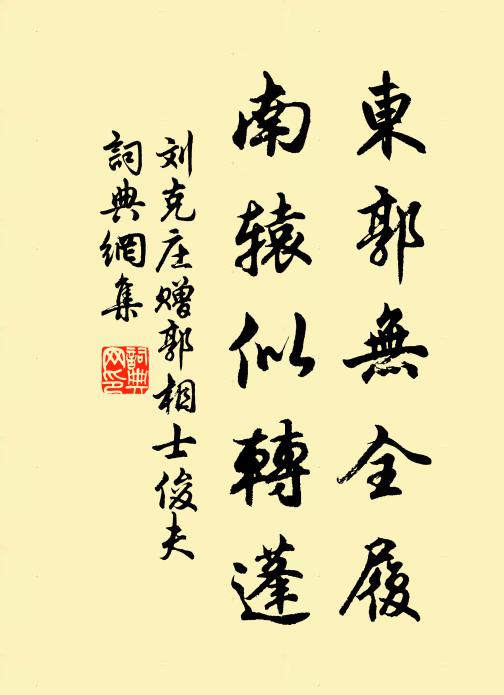 東郭無全履
南辕似轉蓬
刘克庄赠郭相士俊夫
詞典網集
詞典网印